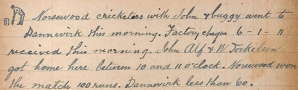 Norsewood cricketers with John & buggy went to
Dannevirk this morning. Factory cheque 6 - 1 - 11
received this morning. John Alf & H. Torkelson
got home here between 10 and 11 o'clock. Norsewood won
the match 100 runs. Dannevirk less than 60.